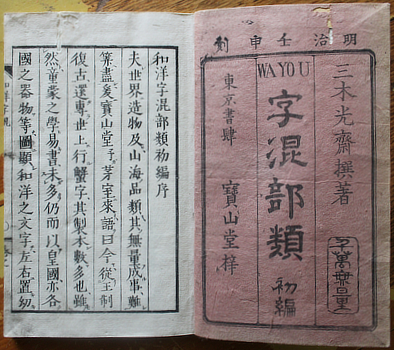 明治壬申刻
三木光齋撰著
WAYOU
字混部類
初編
東京書肆
寶山堂梓
和洋字混部類初編序
夫世界造物及山海品類其無量成事難
篆盡爰寶山堂
茅室來語曰今從王制
復古還專世上行蟹字其製本數多也雖
然童蒙之學易書未多仍而以皇國亦各
國之器物等圖顯和洋之文字左右置幼